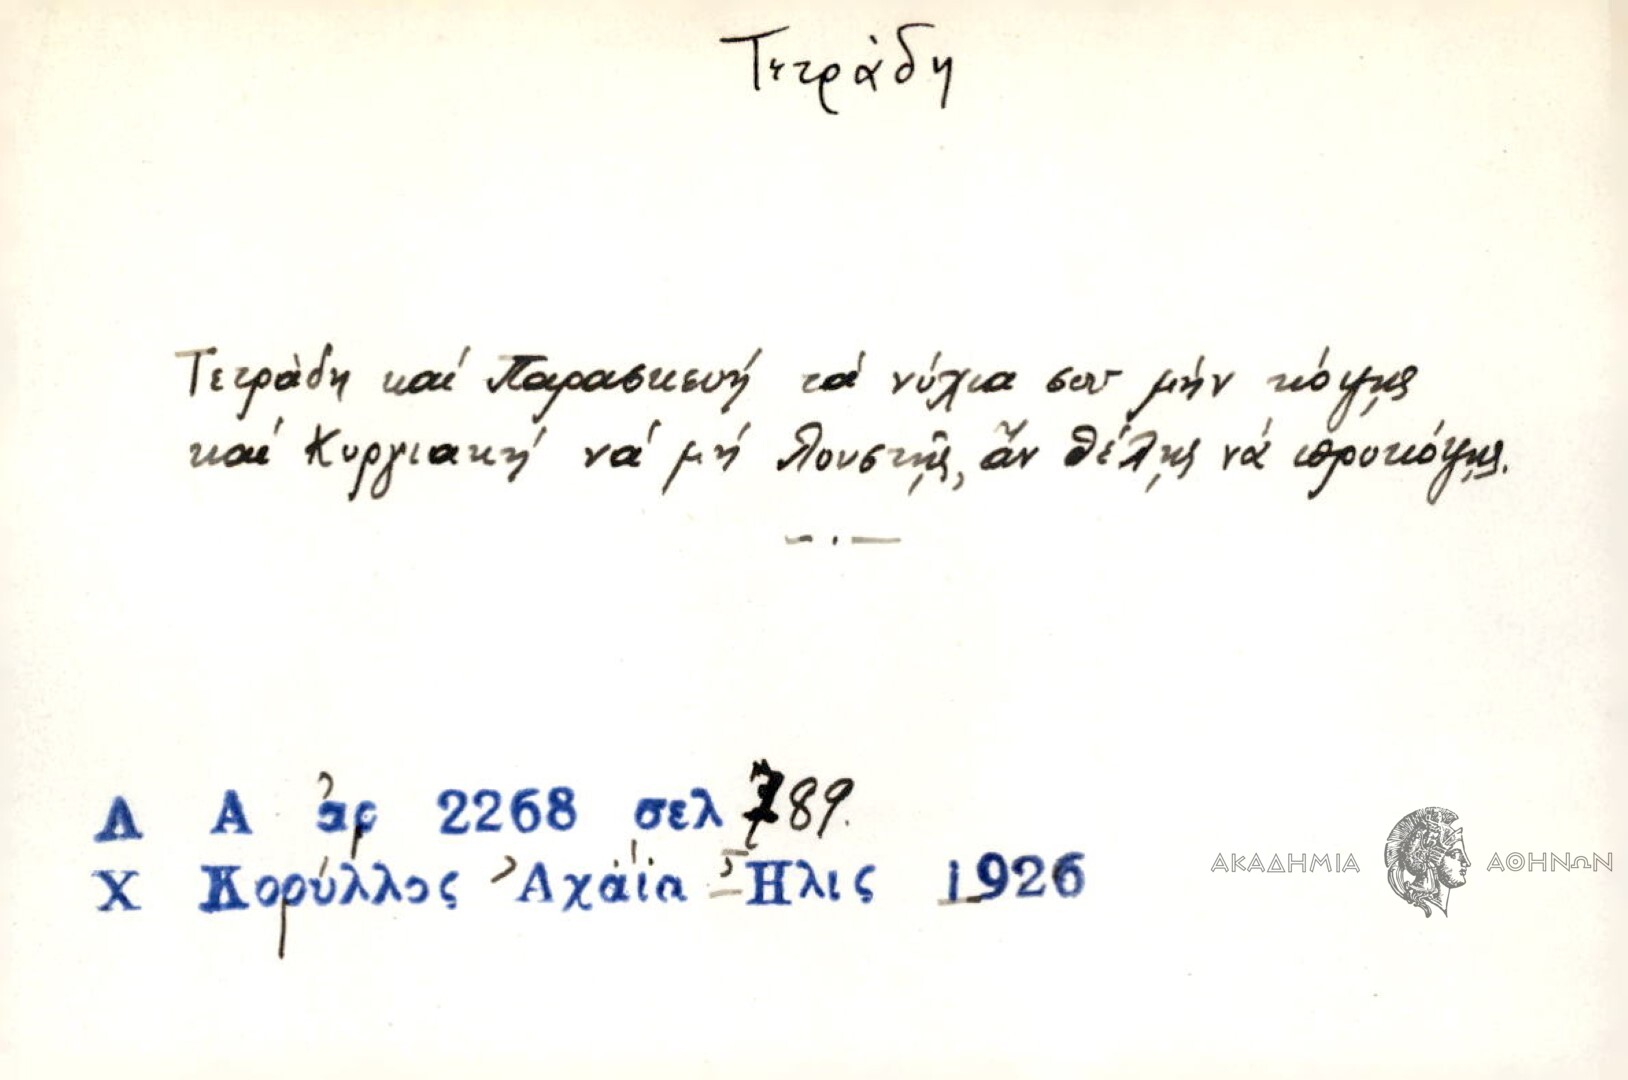 Τετράδη
Τετράδη καί Παρασκευή τά νύχια σου μήν κόψῃς
καί Κυργιακή νά μή λουστῇς, ἄν θέλῃς νά προκόψῃς.
Λ Α ἀρ 2268 σελ 789.
Χ Κορύλλος Ἀχαΐα - Ἦλις 1926
ΑΚΑΔΗΜΙΑ ΑΘΗΝΩΝ